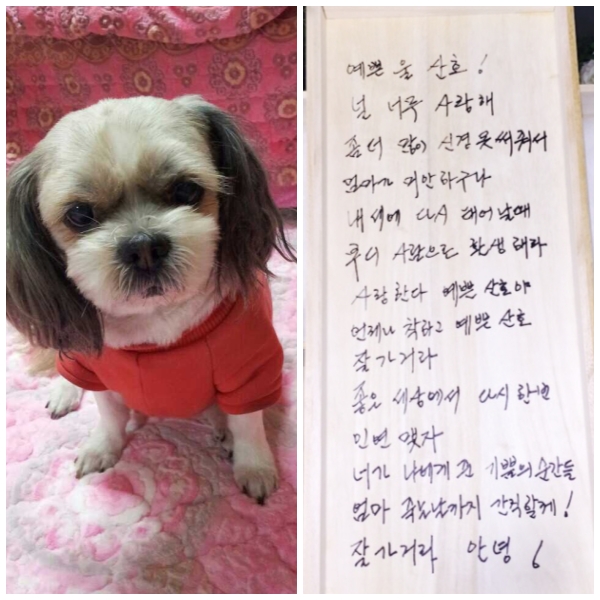 예쁜 울 산호!
널 너무 사랑해
좀더 많이 신경 못써줘서
엄마가 미안하구나
내세에 다시 태어날때
부디 사람으로 환생해라
사랑한다 예쁜 산호야
언제나 착하고 예쁜 산호
잘가거라
좋은 세상에서 다시한번
인연 맺자
너가 나에게 준 기쁨의 순간들
엄마 죽는날까지 간직할게!
잘가거라 안녕!